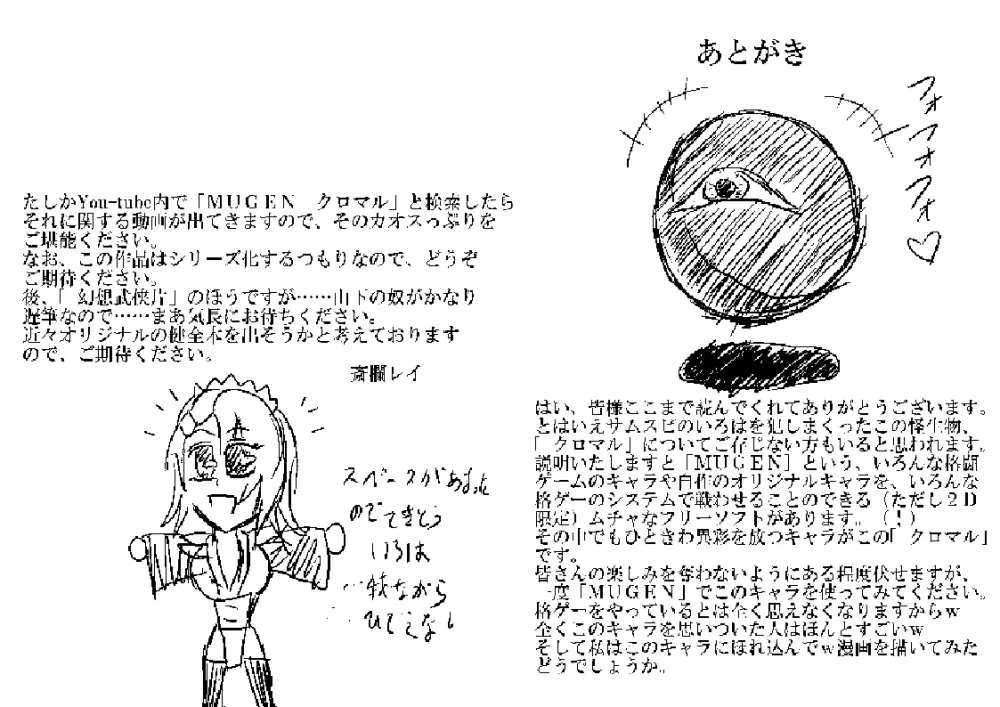 あとがき
フォフォフォ♡
はい、皆様ここまで読んでくれてありがとうございます。
とはいえサムスピのいろはを犯しまくったこの怪生物、
「クロマル」についてご存じない方もいると思われます。
説明いたしますと「ＭＵＧＥＮ］という、いろんな格闘
ゲームのキャラや自作のオリジナルキャラを、いろんな
格ゲーのシステムで戦わせることのできる（ただし２Ｄ
限定）ムチャなフリーソフトがあります。（！）
その中でもひときわ異彩を放つキャラがこの「クロマル」
です。
皆さんの楽しみを奪わないようにある程度伏せますが、
一度「ＭＵＧＥＮ」でこのキャラを使ってみてください。
格ゲーをやっているとは全く思えなくなりますからｗ
全くこのキャラを思いついた人はほんとすごいｗ
そして私はこのキャラにほれ込んでｗ漫画を描いてみた
どうでしょうか。
たしかYou-tube内で「ＭＵＧＥＮ　クロマル」と検索したら
それに関する動画が出てきますので、そのカオスっぷりを
ご堪能ください。
なお、この作品はシリーズ化するつもりなので、どうぞ
ご期待ください。
後、「幻想武侠片」のほうですが……山下の奴がかなり
遅筆なので……まあ気長にお待ちください。
近々オリジナルの健全本を出そうかと考えております
ので、ご期待ください。
斎欄レイ
スペースがあまった
のでてきとう
いろは
…我ながら
ひでえなι